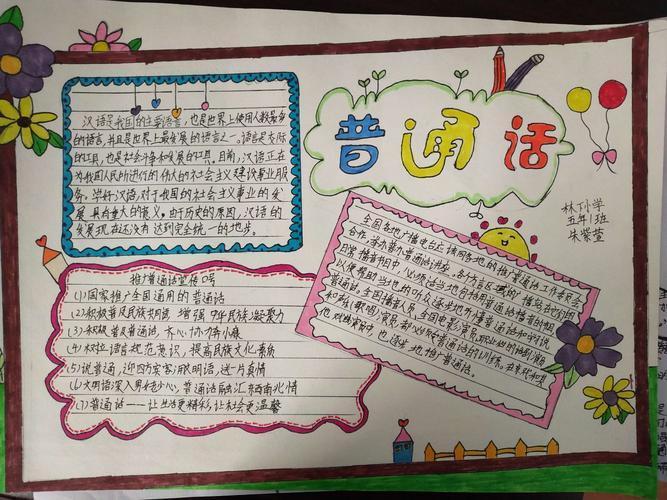 普通话
林下小学
五年1班
朱紫萱
汉语是我国的主要语言,也是世界上使用人数最多
的语言,并且是世界上最发展的语言之一。语言是交际
的工具,也是社会斗争和发展的工具。目前,汉语正在
为我国人民所进行的伟大的社会主义建设事业服
务。学好汉语,对于我国的社会主义事业的发
展具有重大的意义。由于历史的原因,汉语的
发展现在还没有达到完全统一的地步。
推广普通话宣传口号
(1)国家推广全国通用的普通话
(2)积极普及民族共同语 增强中华民族凝聚力
(3)积极普及普通话,齐心协力奔小康
(4)树立语言规范意识,提高民族文化素质
(5)说普通,迎四方宾客用文明语,送一片真情
(6)文明语深入男女老少心,普通话融汇东西南北情
(7)普通话——让生活更精彩,让社会更温馨
全国各地广播电台应该同各地的推广普通话工作委员会
合作,举办普通话讲座。各方言区域的播
日常播音节目中,必须适当地包括用普通话播音的
以便帮助当地的听众逐步地听懂普通话和学说
普通话。全国播音人员,全国电影演员,职业性的话剧演员
和歌(歌唱)演员,都必须受普通话的训练。
他 中,也应该逐步地推广普通话。